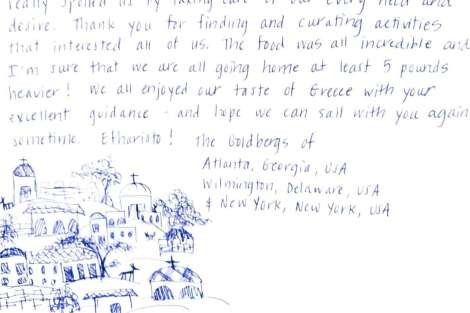 really spoiled us by taking care of our every need and
desire. Thank you for finding and curating activities
that interested all of us. The food was all incredible and
I'm sure that we are all going home at least 5 pounds
heavier! We all enjoyed our taste of Greece with your
excellent guidance - and hope we can sail with you again
sometime. Etharisto! The Goldbergs of
Atlanta, Georgia, USA
Wilmington, Delaware, USA
& New York, New York, USA